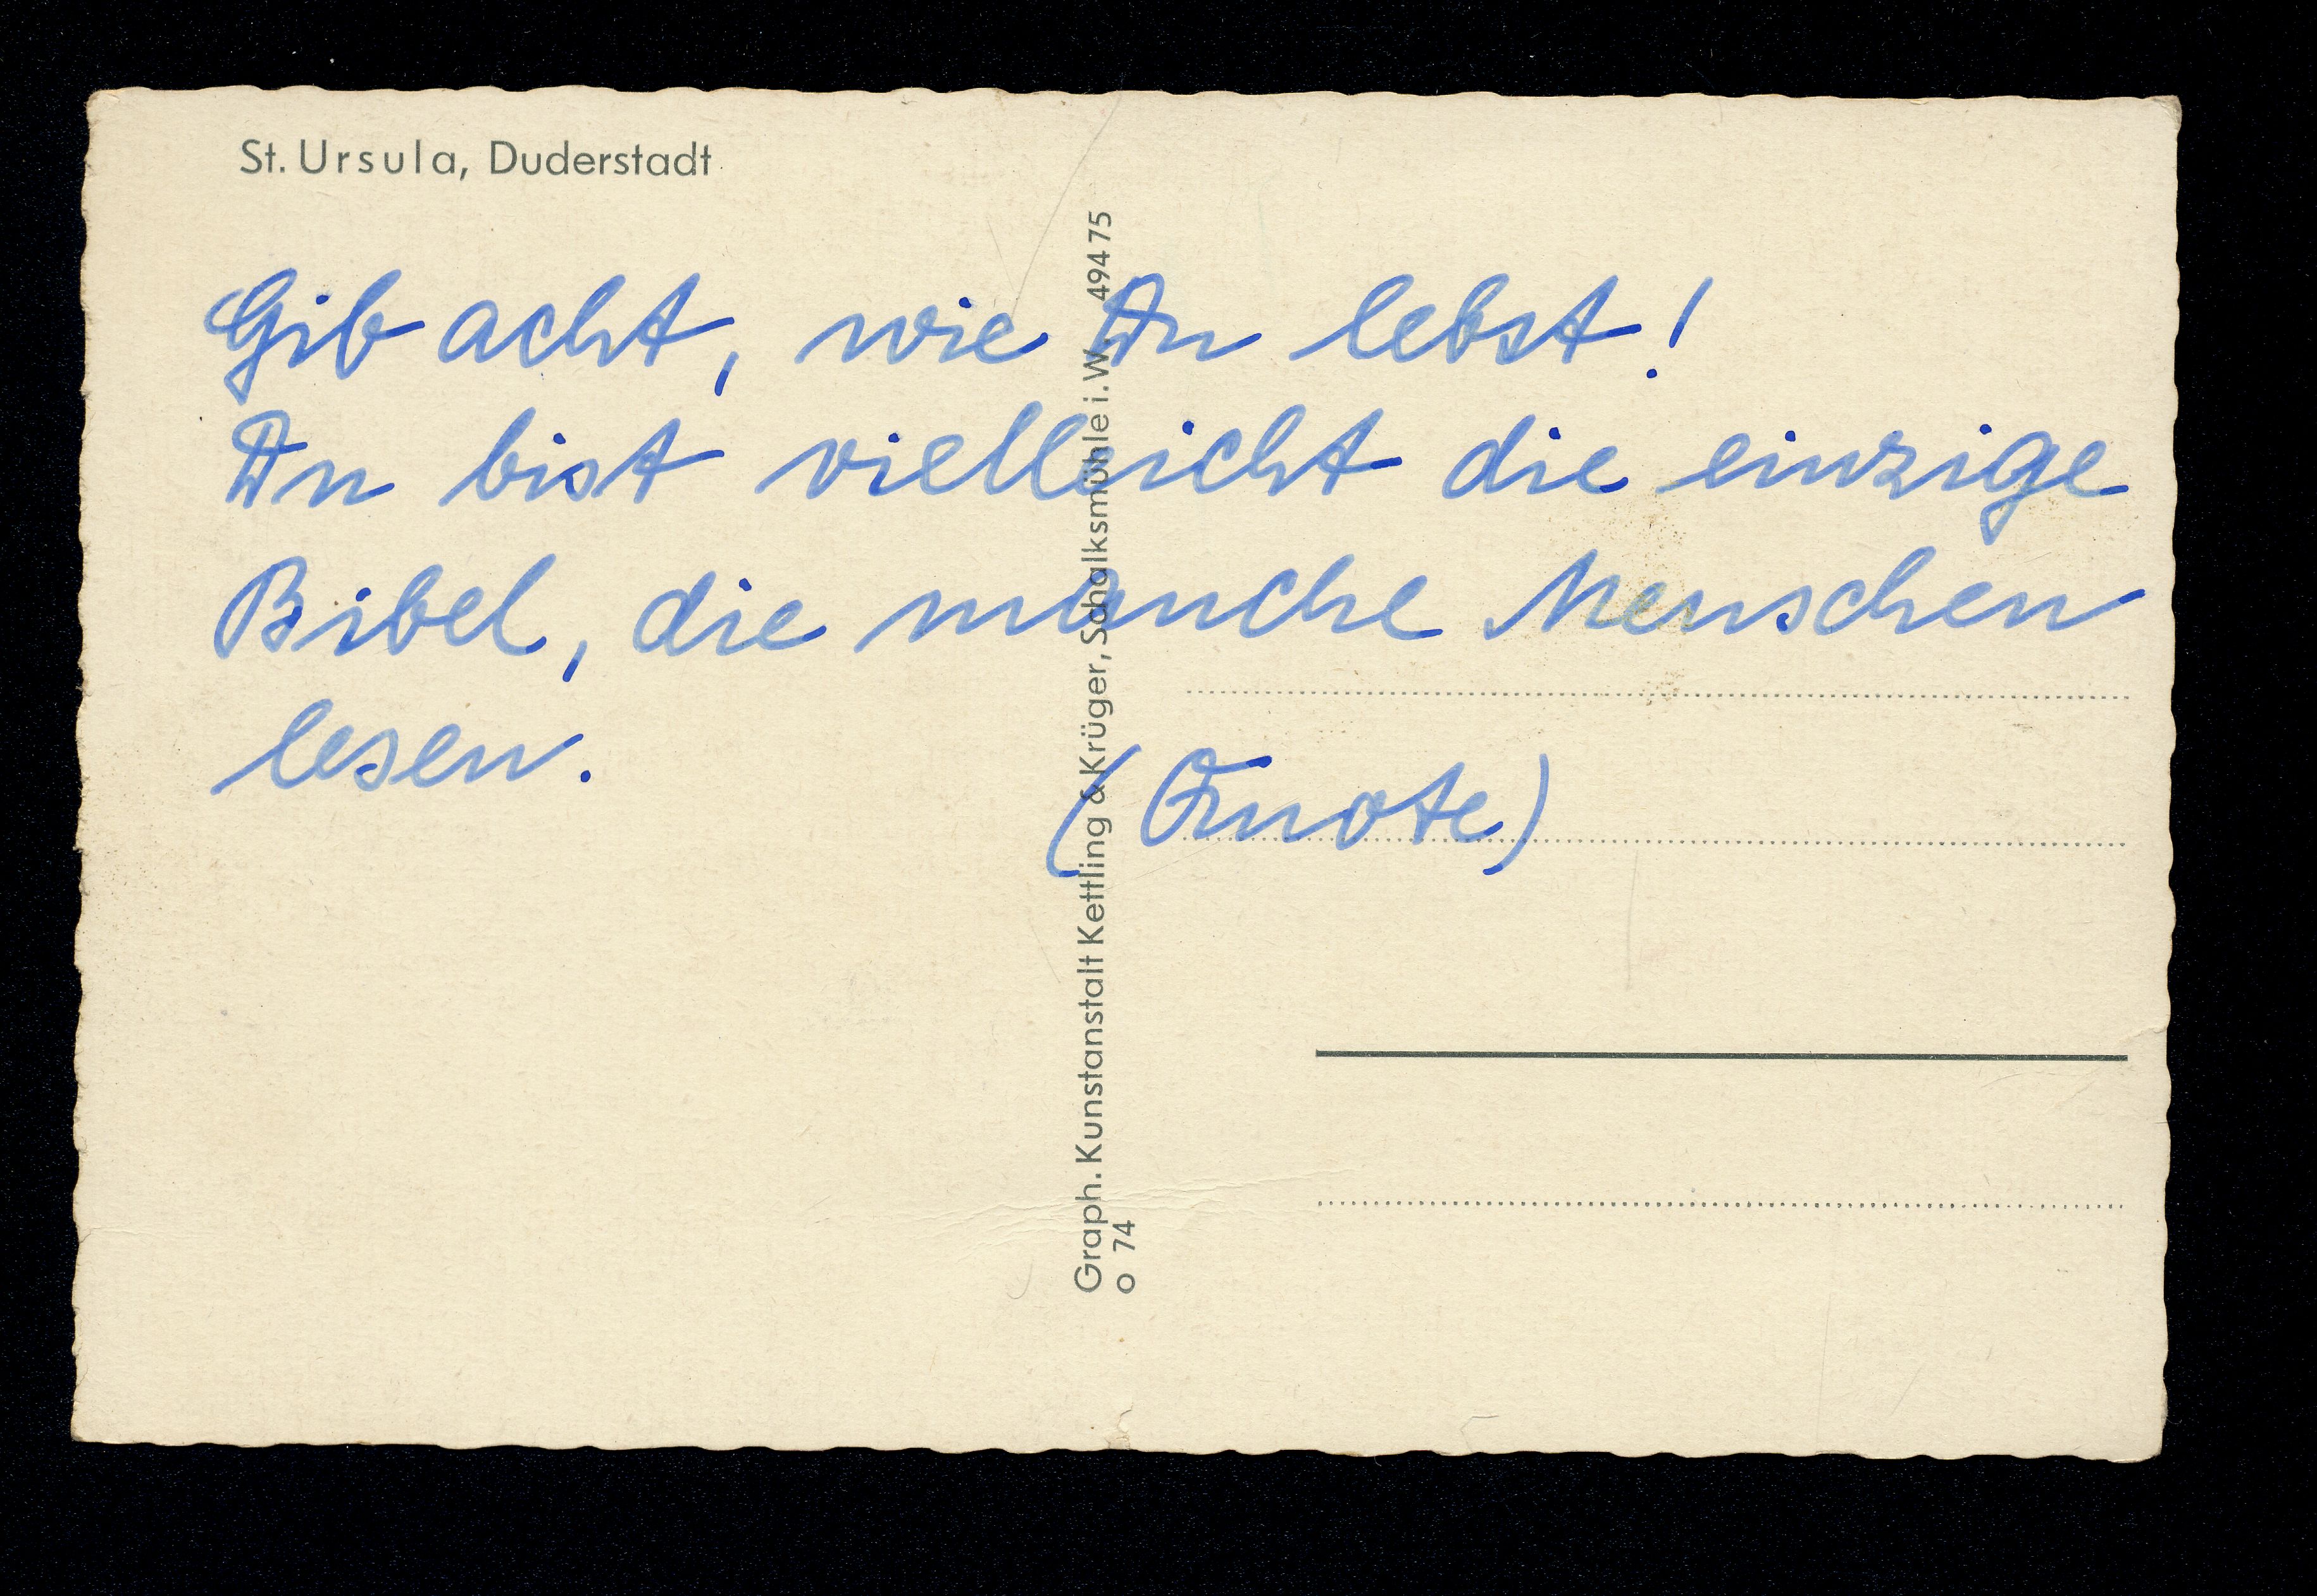 St. Ursula, Duderstadt
Gib acht, wie Du lebst!
Du bist vielleicht die einzige
Bibel, die manche Menschen
lesen.
(Quote)
Graph. Kunstanstalt Kettling & Krüger, Schalksmühle i. W. 49475
O 74